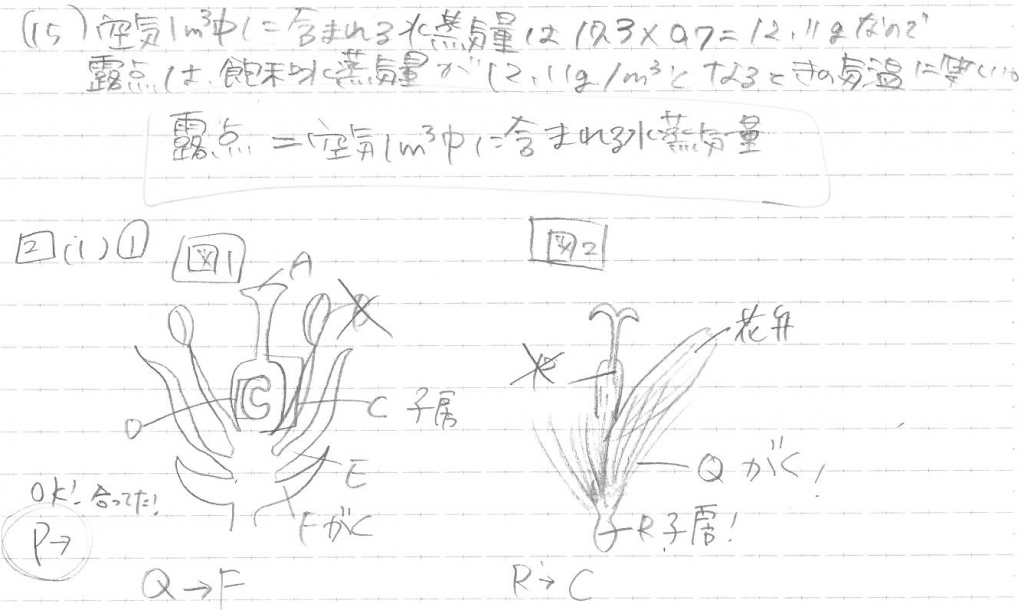 (15) 空気1m³中に含まれる水蒸気量は17.3×0.7=12.11gなので
露点は、飽和水蒸気量が12.11g/m³となるときの気温に等しい。
露点 = 空気1m³中に含まれる水蒸気量
2 (1) ① 図1 図2
A
花弁
C
C 子房
D
E
Q がく!
OK! 合ってた!
Fがく
R 子房!
P→
Q→F
R→C